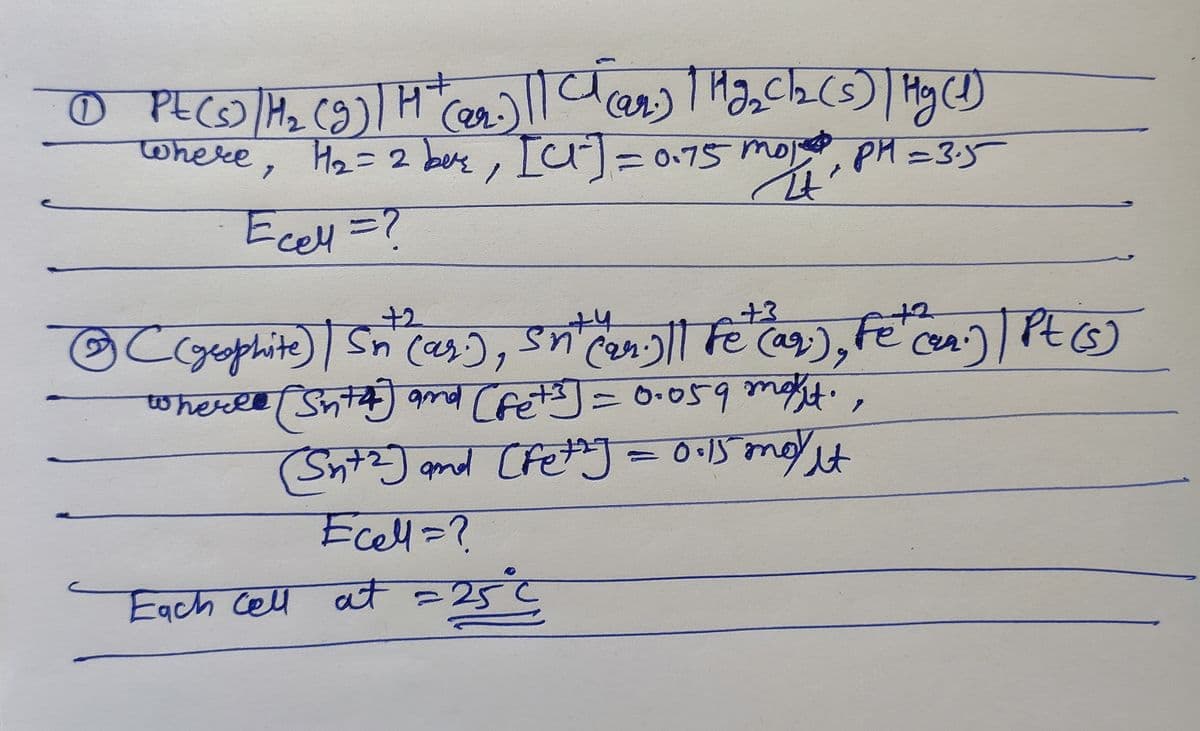 ① Pt(s)|H₂(g)|H⁺(aq.)||Cl⁻(aq.)|Hg₂Cl₂(s)|Hg(l)
where, H₂ = 2 bar, [Cl⁻] = 0.75 mol/lt, pH = 3.5
Ecell = ?
② C(graphite)|Sn⁺²(aq.), Sn⁺⁴(aq.)||Fe⁺³(aq.), Fe⁺²(aq.)|Pt(s)
where [Sn⁺⁴] and [Fe⁺³] = 0.059 mol/lt.,
[Sn⁺²] and [Fe⁺²] = 0.15 mol/lt
Ecell = ?
Each cell at = 25°C